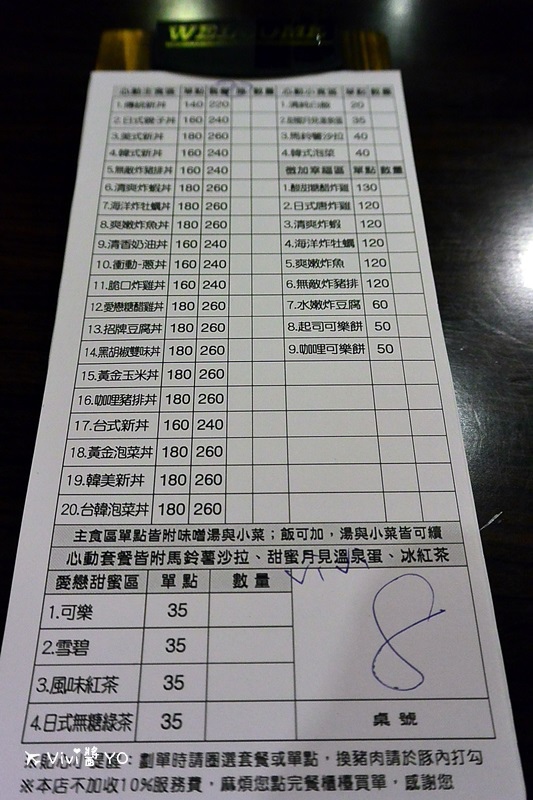 WELCOME
心動主食區 單點 套餐 數量 心動小食區 單點 數量
1.傳統新丼 140 220 1.清純白飯 20
2.日式親子丼 160 240 35
3.美式新丼 180 260 3.馬鈴薯沙拉 40
4.韓式新丼 160 240 4.韓式泡菜 40
5.無敵炸豬排丼 160 240 微加幸福區 單點 數量
6.清爽炸蝦丼 180 260 1.酸甜糖醋炸雞 130
7.海洋炸牡蠣丼 180 260 2.日式唐炸雞 120
8.爽嫩炸魚丼 180 260 3.清爽炸蝦 120
9.清香奶油丼 160 240 4.海洋炸牡蠣 120
10.衝動-蔥丼 160 240 5.爽嫩炸魚 120
11.脆口炸雞丼 160 240 6.無敵炸豬排 120
12.愛戀糖醋雞丼 180 260 7.水嫩炸豆腐 60
13.招牌豆腐丼 180 260 8.起司可樂餅 50
14.黑胡椒雙味丼 180 260 9.咖哩可樂餅 50
15.黃金玉米丼 180 260
16.咖哩豬排丼 180 260
17.台式新丼 160 240
18.黃金泡菜丼 180 260
19.韓美新丼 180 260
20.台韓泡菜丼 180 260
主食區單點皆附味噌湯與小菜；飯可加，湯與小菜皆可續
心動套餐皆附馬鈴薯沙拉、甜蜜月見溫泉蛋、冰紅茶
愛戀甜蜜區 單點 數量
1.可樂 35
2.雪碧 35
3.風味紅茶 35
4.日式無糖綠茶 35
8
桌號
劃單時請圈選套餐或單點，換豬肉請於豚內打勾
※本店不加收10%服務費，麻煩您點完餐櫃檯買單，感謝您
Vivi醬YO